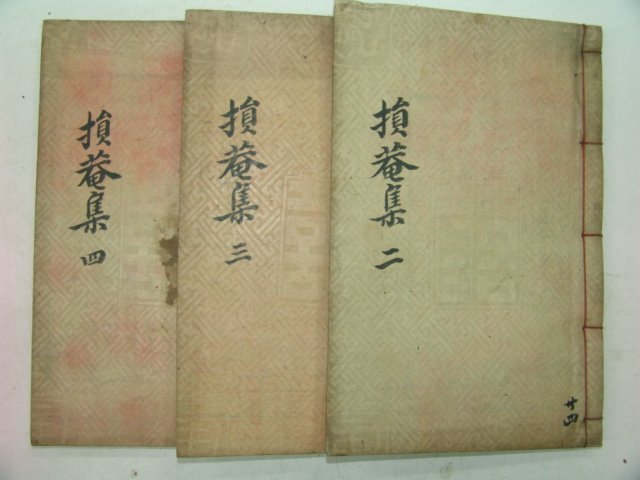 損菴集 二
廿四
損菴集 三
損菴集 四